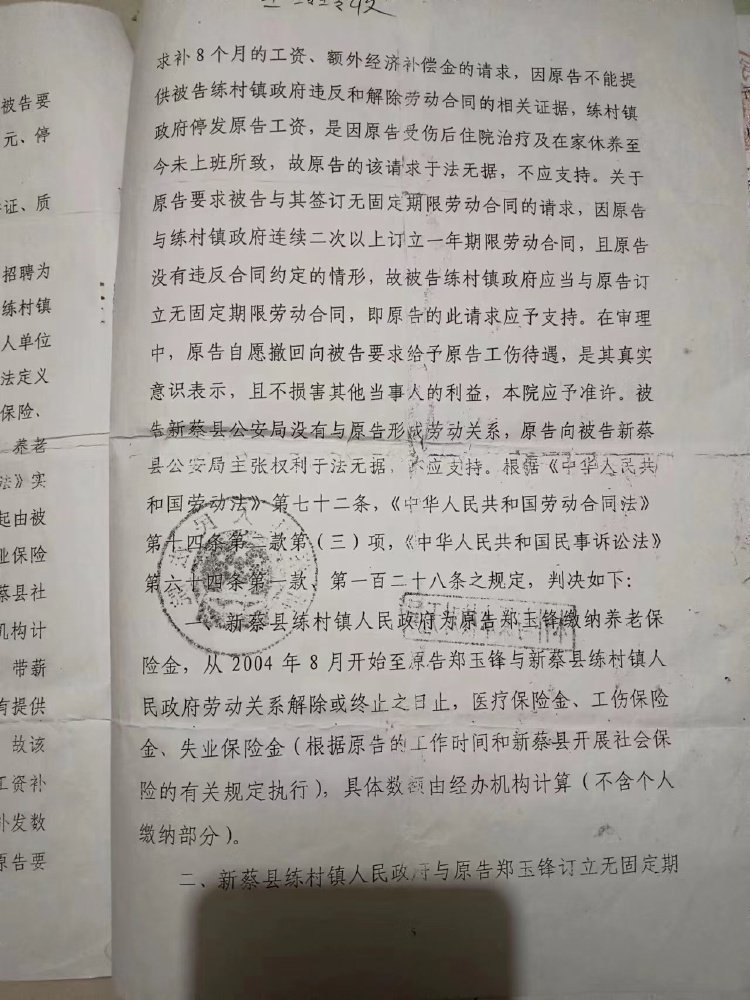 被告要
元、停
证、质
招聘为
练村镇
人单位
法定义
保险、
养老
法》实
起由被
业保险
蔡县社
机构计
带薪
有提供
故该
工资补
补发数
原告要
求补8个月的工资、额外经济补偿金的请求，因原告不能提
供被告练村镇政府违反和解除劳动合同的相关证据，练村镇
政府停发原告工资，是因原告受伤后住院治疗及在家休养至
今未上班所致，故原告的该请求于法无据，不应支持。关于
原告要求被告与其签订无固定期限劳动合同的请求，因原告
与练村镇政府连续二次以上订立一年期限劳动合同，且原告
没有违反合同约定的情形，故被告练村镇政府应当与原告订
立无固定期限劳动合同，即原告的此请求应予支持。在审理
中，原告自愿撤回向被告要求给予原告工伤待遇，是其真实
意识表示，且不损害其他当事人的利益，本院应予准许。被
告新蔡县公安局没有与原告形成劳动关系，原告向被告新蔡
县公安局主张权利于法无据，不应支持。根据《中华人民共
和国劳动法》第七十二条，《中华人民共和国劳动合同法》
第十四条第二款第（三）项，《中华人民共和国民事诉讼法》
第六十四条第一款、第一百二十八条之规定，判决如下：
一、新蔡县练村镇人民政府为原告郑玉锋缴纳养老保
险金，从2004年8月开始至原告郑玉锋与新蔡县练村镇人
民政府劳动关系解除或终止之日止，医疗保险金、工伤保险
金、失业保险金（根据原告的工作时间和新蔡县开展社会保
险的有关规定执行），具体数额由经办机构计算（不含个人
缴纳部分）。
二、新蔡县练村镇人民政府与原告郑玉锋订立无固定期